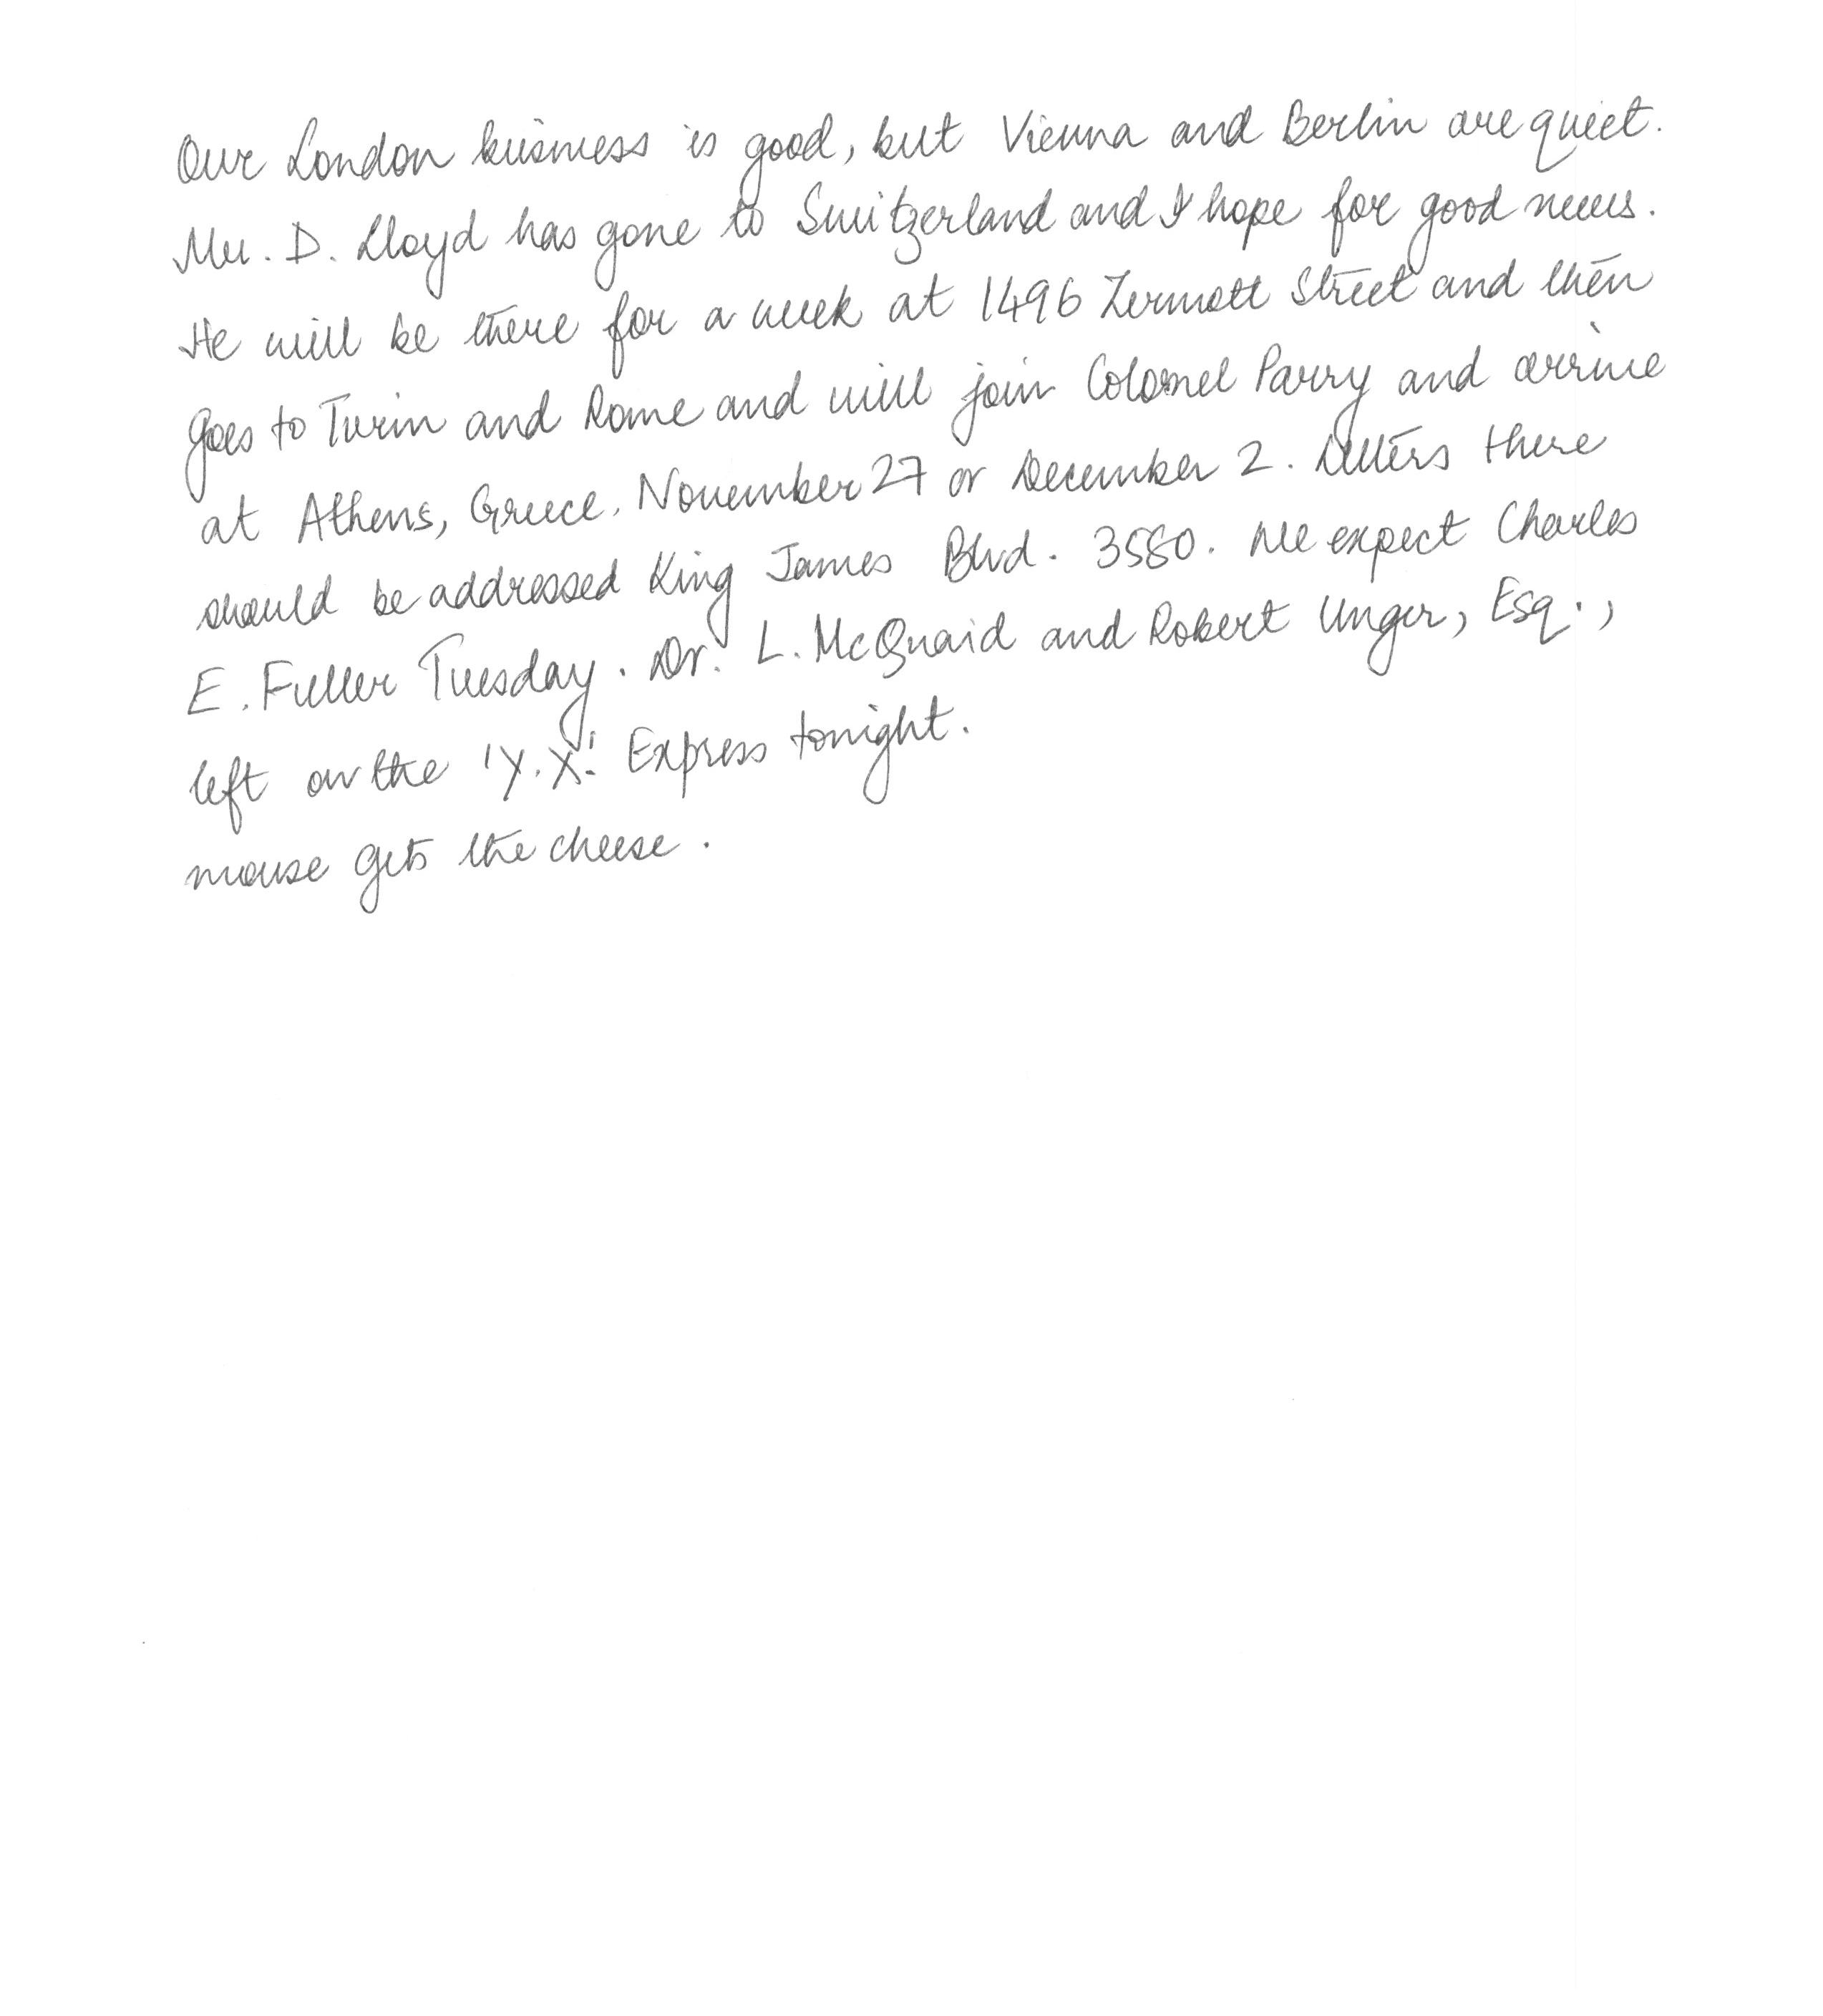 Our London business is good, but Vienna and Berlin are quiet.
Mr. D. Lloyd has gone to Switzerland and I hope for good news.
He will be there for a week at 1496 Zermott Street and then
goes to Turin and Rome and will join Colonel Parry and arrive
at Athens, Greece, November 27 or December 2. Letters there
should be addressed King James Blvd. 3580. We expect Charles
E. Fuller Tuesday. Dr. L. McQuaid and Robert Unger, Esq.,
left on the 'Y.X.' Express tonight.
mouse gets the cheese.